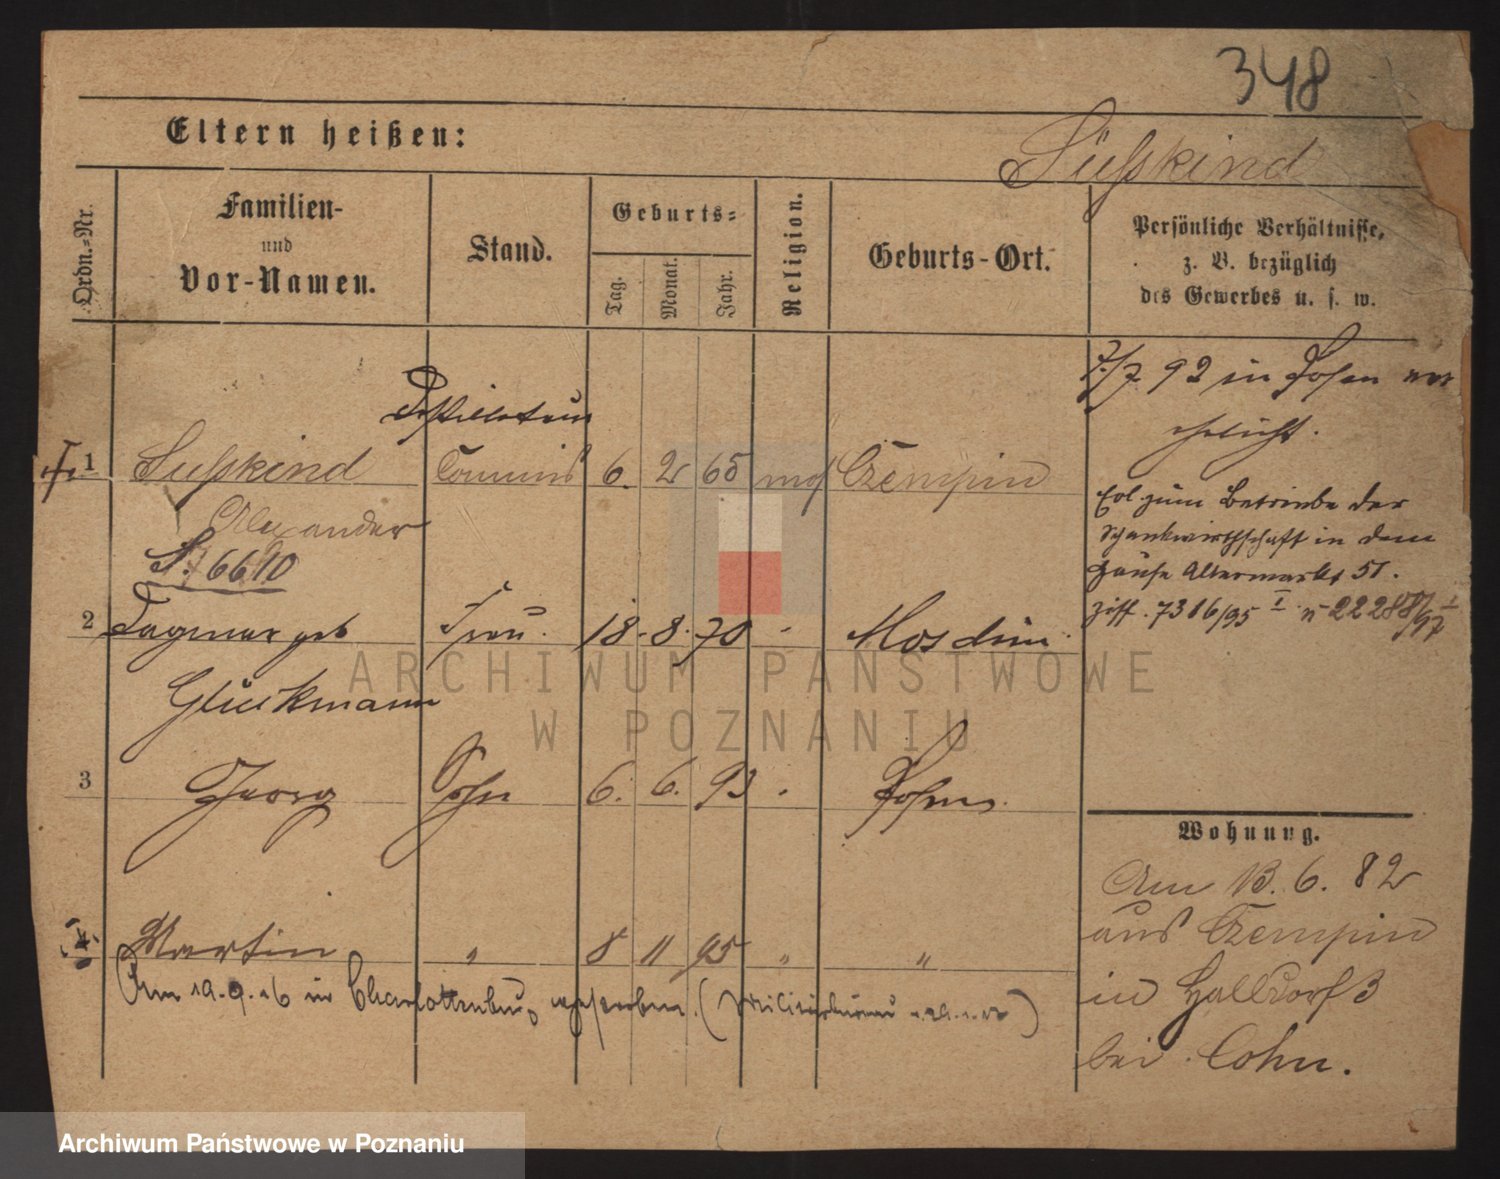 348
Eltern heißen:
Süßkind
Ordn.-Nr.
Familien-
und
Vor-Namen.
Stand.
Geburts-
Tag.
Monat.
Jahr.
Religion.
Geburts-Ort.
Persönliche Verhältnisse,
z. B. bezüglich
des Gewerbes u. s. w.
7/7 92 in Posen ver
ehelicht.
Destillateur
1 Süßkind Commis 6. 2 65 mos Czempin
Alexander
S. 6610
Erl zum Betriebe der
Schankwirthschaft in dem
Hause Altermarkt 51.
2 Dagmar geb Frau. 18. 8. 70 -
Glückmann
3 Georg Sohn 6. 6. 93 - Posen.
4 Martin " 8 11 95 " "
Am 19.9.16 in Charlottenburg gestorben. (Militärbureau
Wohnung.
Am 13. 6. 82
aus Czempin
in Halldorf 3
bei Cohn.
ARCHIWUM PAŃSTWOWE
W POZNANIU
Archiwum Państwowe w Poznaniu